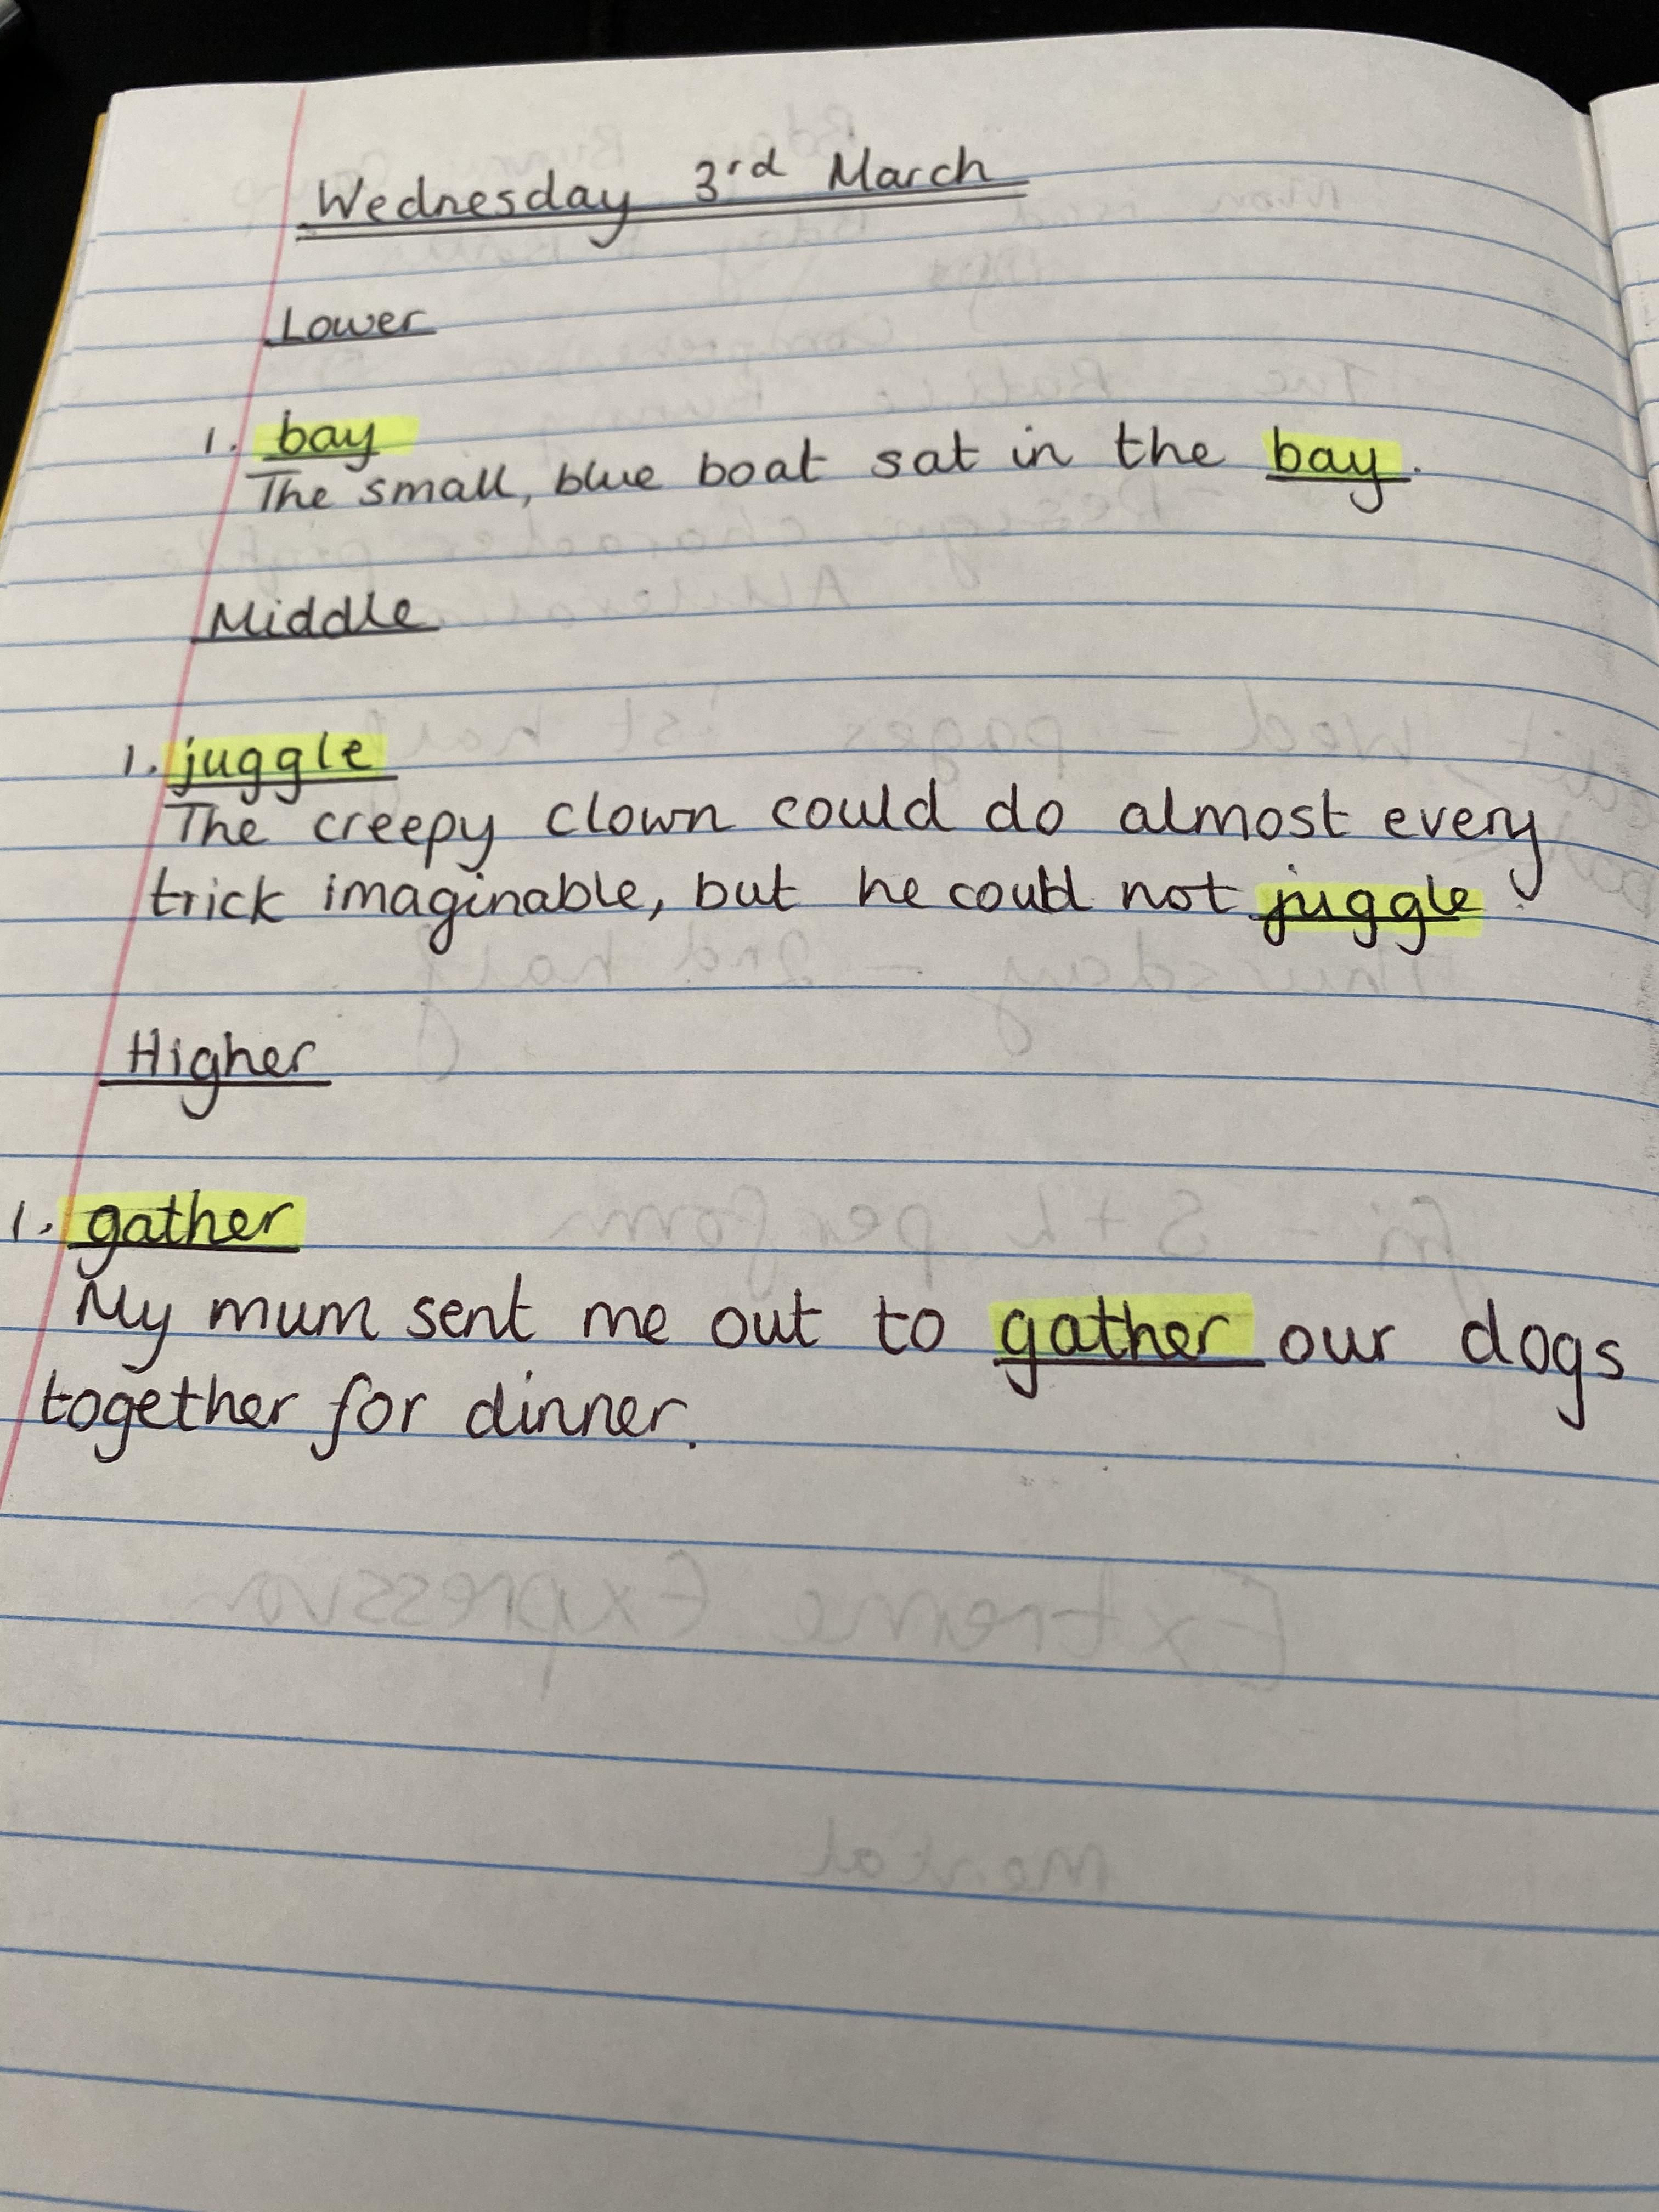 Wednesday 3rd March
Lower
1. bay
The small, blue boat sat in the bay.
Middle
1. juggle
The creepy clown could do almost every
trick imaginable, but he could not juggle.
Higher
1. gather
My mum sent me out to gather our dogs
together for dinner.